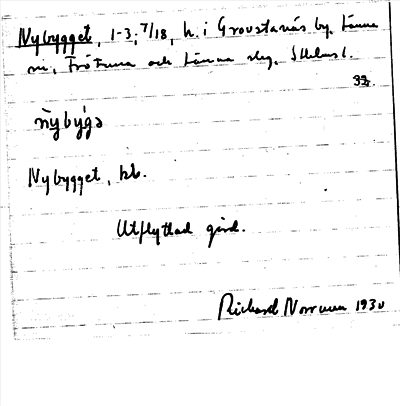 Nybygget, 1-3; 7/18, h. i Grovstanäs by, Länna
sn, Frötuna och Länna skg, Sthlms l.
33.
nybygə
Nybygget, kb.
Utflyttad gård.
Richard Norrman 1930